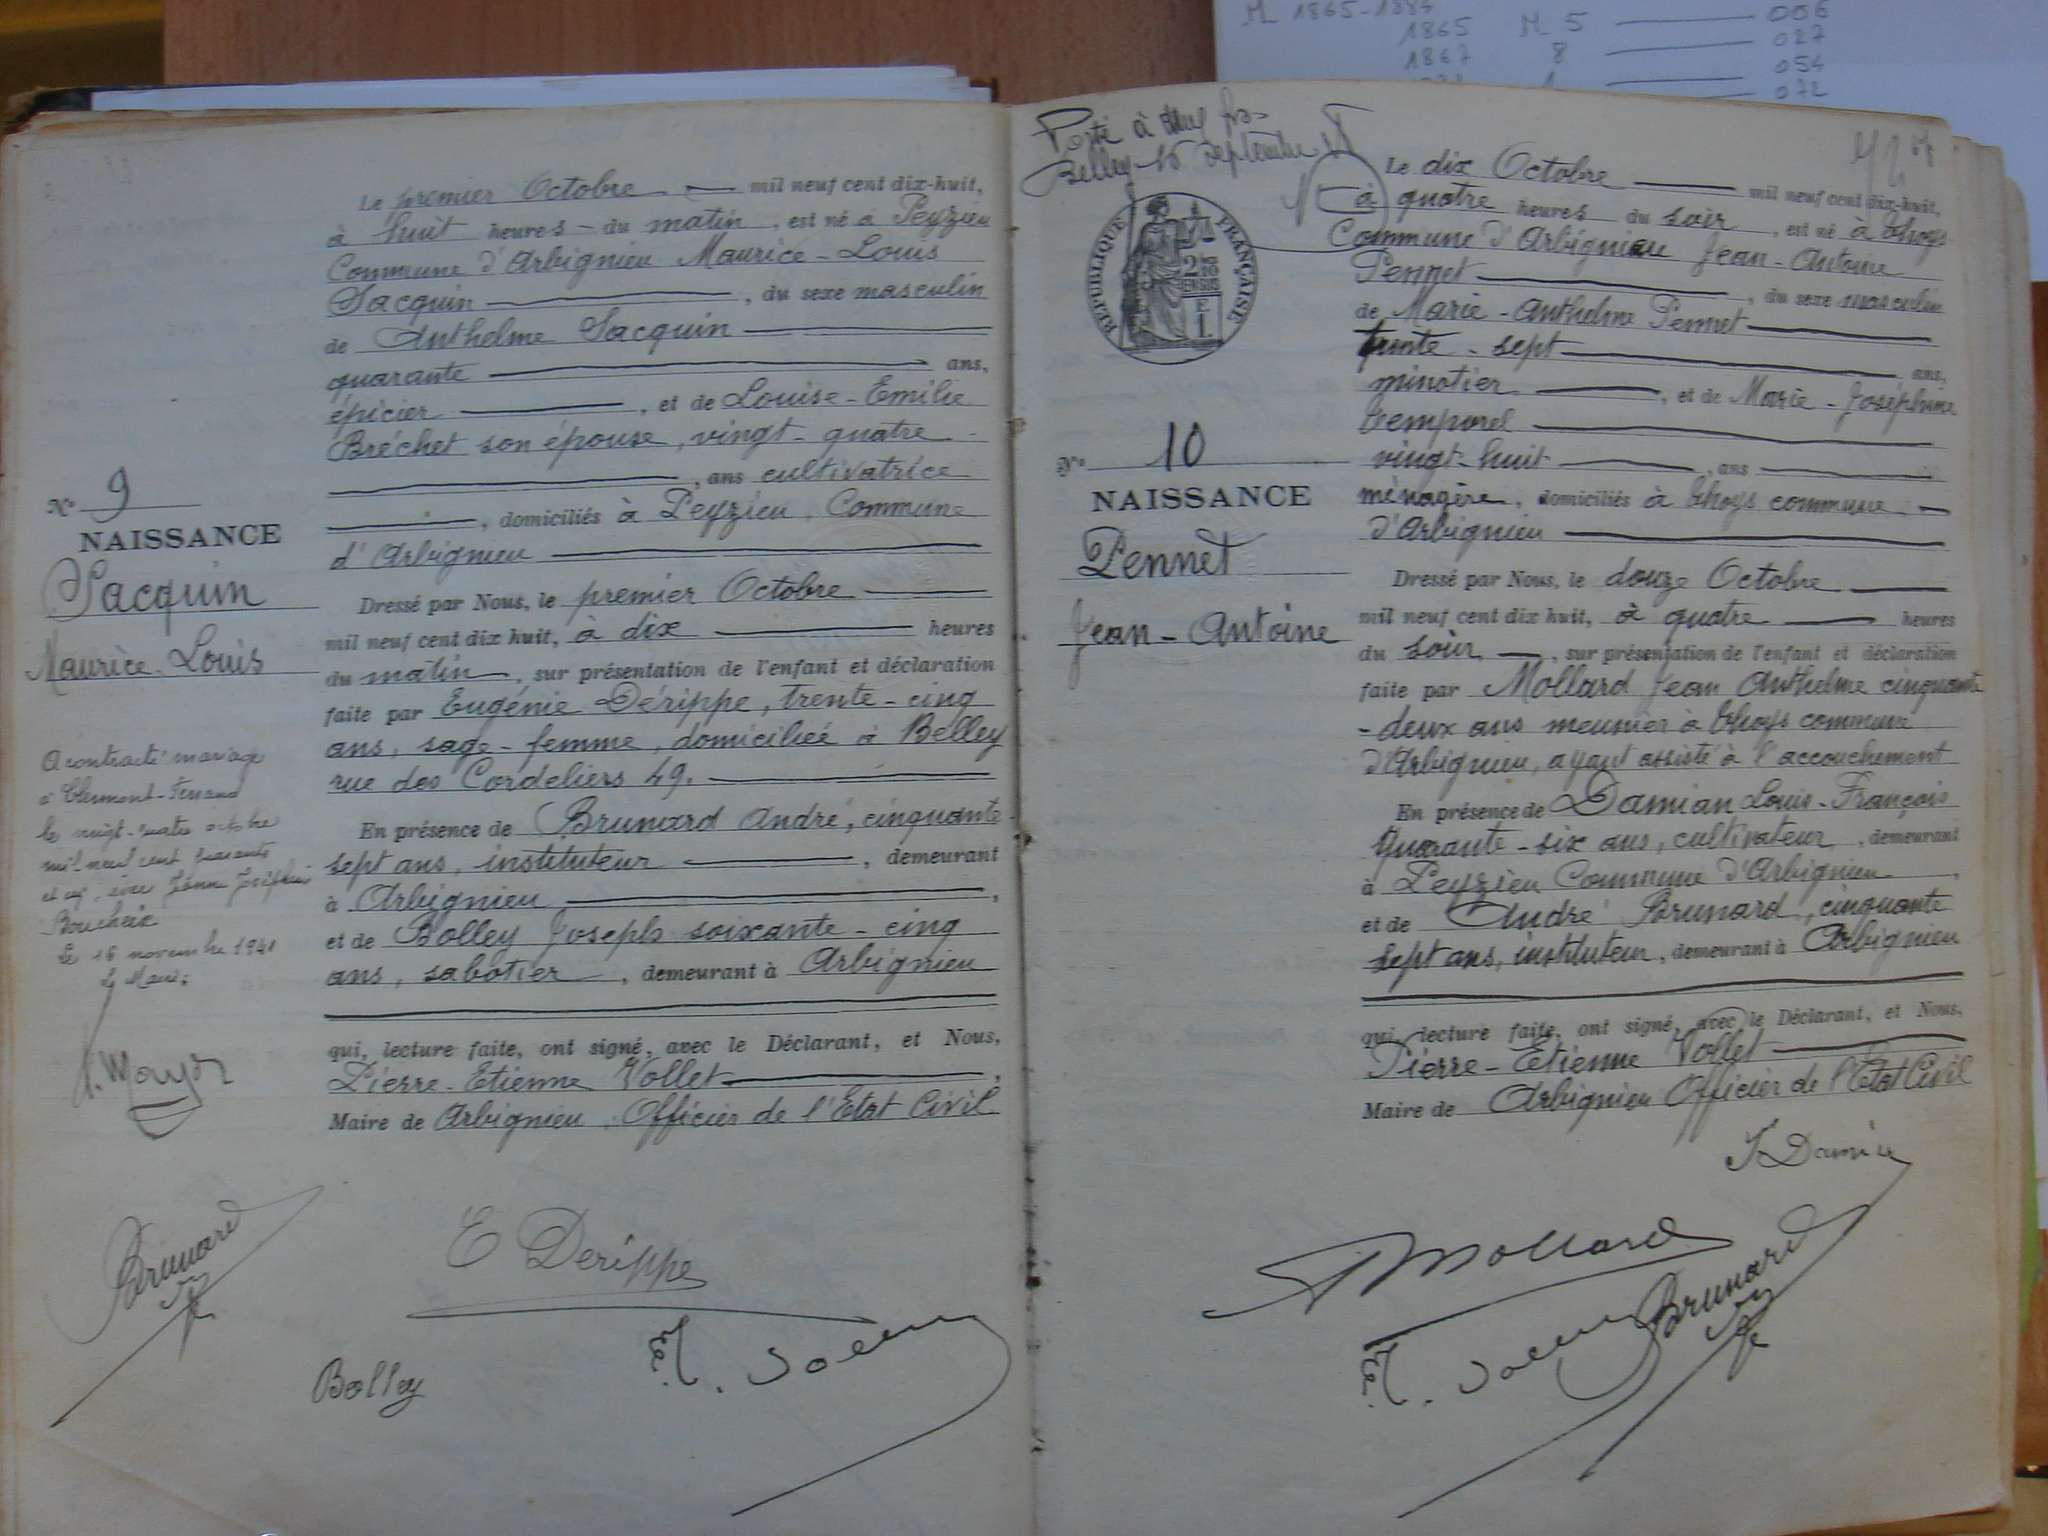 M 1865-1884
1865 M 5 006
1867 8 027
054
072
Le premier Octobre mil neuf cent dix-huit,
à huit heures du matin, est né à Peyzieu
Commune d'Arbignieu Maurice-Louis
Sacquin, du sexe masculin
de Anthelme Sacquin
quarante ans,
épicier, et de Louise-Emilie
Bréchet son épouse, vingt-quatre
, ans cultivatrice
, domiciliés à Peyzieu, Commune
d'Arbignieu
Dressé par Nous, le premier Octobre
mil neuf cent dix huit, à dix heures
du matin, sur présentation de l'enfant et déclaration
faite par Eugénie Dérippe, trente-cinq
ans, sage-femme, domiciliée à Belley
rue des Cordeliers 49.
En présence de Brunard André, cinquante
sept ans, instituteur, demeurant
à Arbignieu,
et de Bolley Joseph soixante-cinq
ans, sabotier, demeurant à Arbignieu
qui, lecture faite, ont signé, avec le Déclarant, et Nous,
Pierre-Etienne Vollet,
Maire de Arbignieu, Officier de l'Etat Civil
N° 9
NAISSANCE
Sacquin
Maurice-Louis
A contracté mariage
à Clermont-Ferrand
le vingt-quatre octobre
mil neuf cent quarante
et un, avec Jeanne Joséphine
Boucheix
Le 16 novembre 1941
Le Maire:
Brunard
E Derippe
Bolley
Porté à
Belley 10 Septembre
RÉPUBLIQUE FRANÇAISE
Le dix Octobre mil neuf cent dix-huit,
à quatre heures du soir, est né à Thoys
Commune d'Arbignieu Jean-Antoine
Pennet, du sexe masculin
de Marie-Anthelme Pennet
trente-sept ans,
minotier, et de Marie-Joséphine
Temporel
vingt-huit, ans
ménagère, domiciliés à Thoys commune
d'Arbignieu
Dressé par Nous, le douze Octobre
mil neuf cent dix huit, à quatre heures
du soir, sur présentation de l'enfant et déclaration
faite par Mollard Jean Anthelme cinquante
-deux ans meunier à Thoys commune
d'Arbignieu, ayant assisté à l'accouchement
En présence de Damian Louis-François
Quarante-six ans, cultivateur, demeurant
à Peyzieu Commune d'Arbignieu,
et de André Brunard, cinquante
sept ans, instituteur, demeurant à Arbignieu
qui, lecture faite, ont signé, avec le Déclarant, et Nous,
Pierre-Etienne Vollet
Maire de Arbignieu Officier de l'Etat Civil
N° 10
NAISSANCE
Pennet
Jean-Antoine
Mollard
Brunard